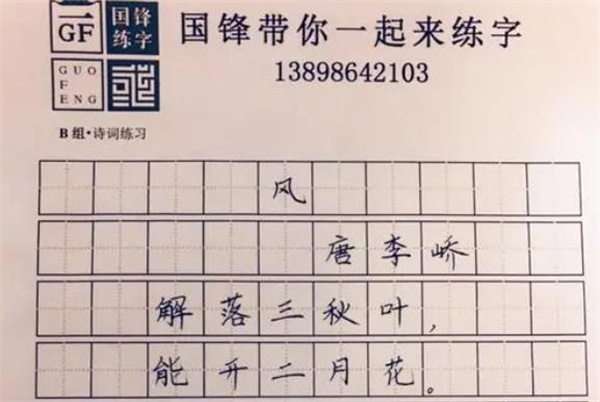 GF
国锋
练字
GUO
F
ENG
国锋带你一起来练字
13898642103
B组·诗词练习
风
唐李峤
解落三秋叶，
能开二月花。